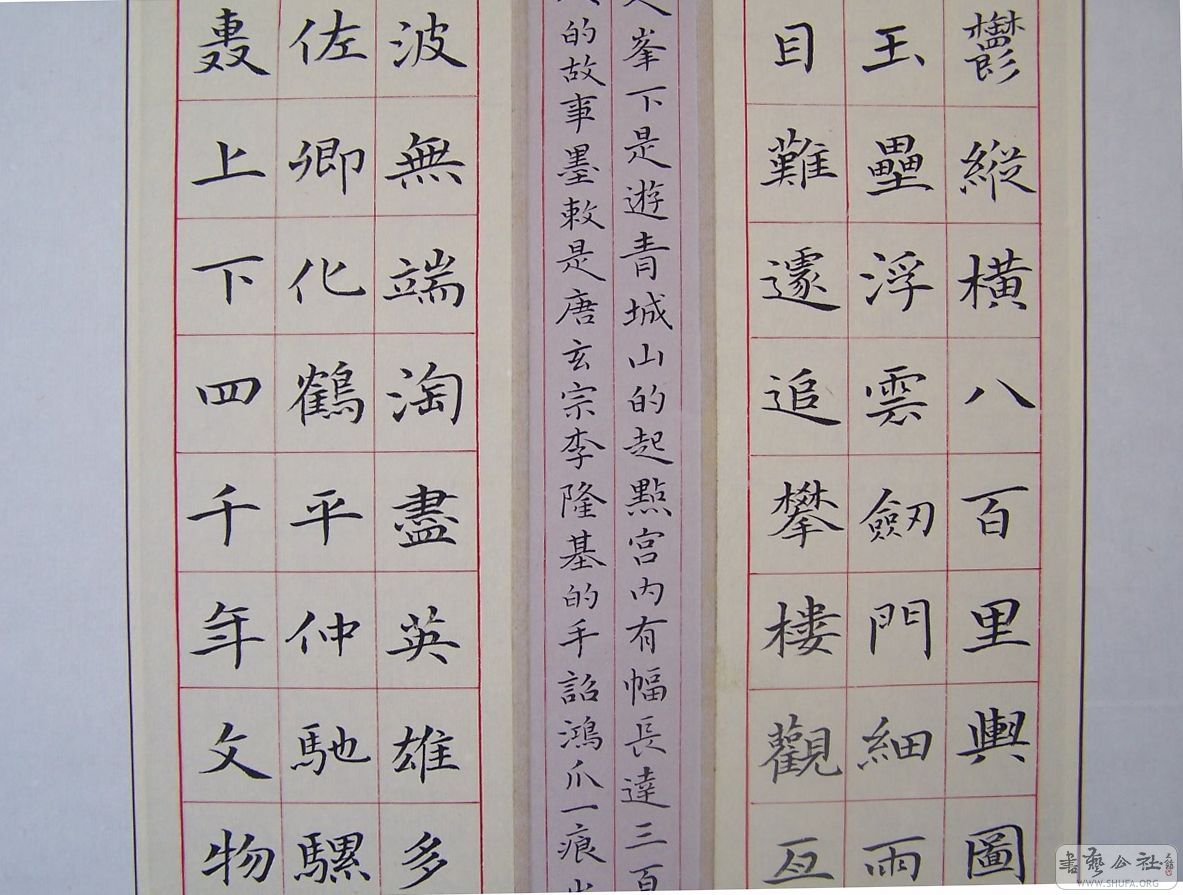 鬱縱横八百里輿圖
玉壘浮雲劔門細雨
目難遽追攀樓觀互
峯下是遊青城山的起點宮内有幅長達三百
的故事墨敕是唐玄宗李隆基的手詔鴻爪一痕
波無端淘盡英雄多
佐卿化鶴平仲馳騾
轟上下四千年文物
書藝公社
WWW.SHUFA.ORG